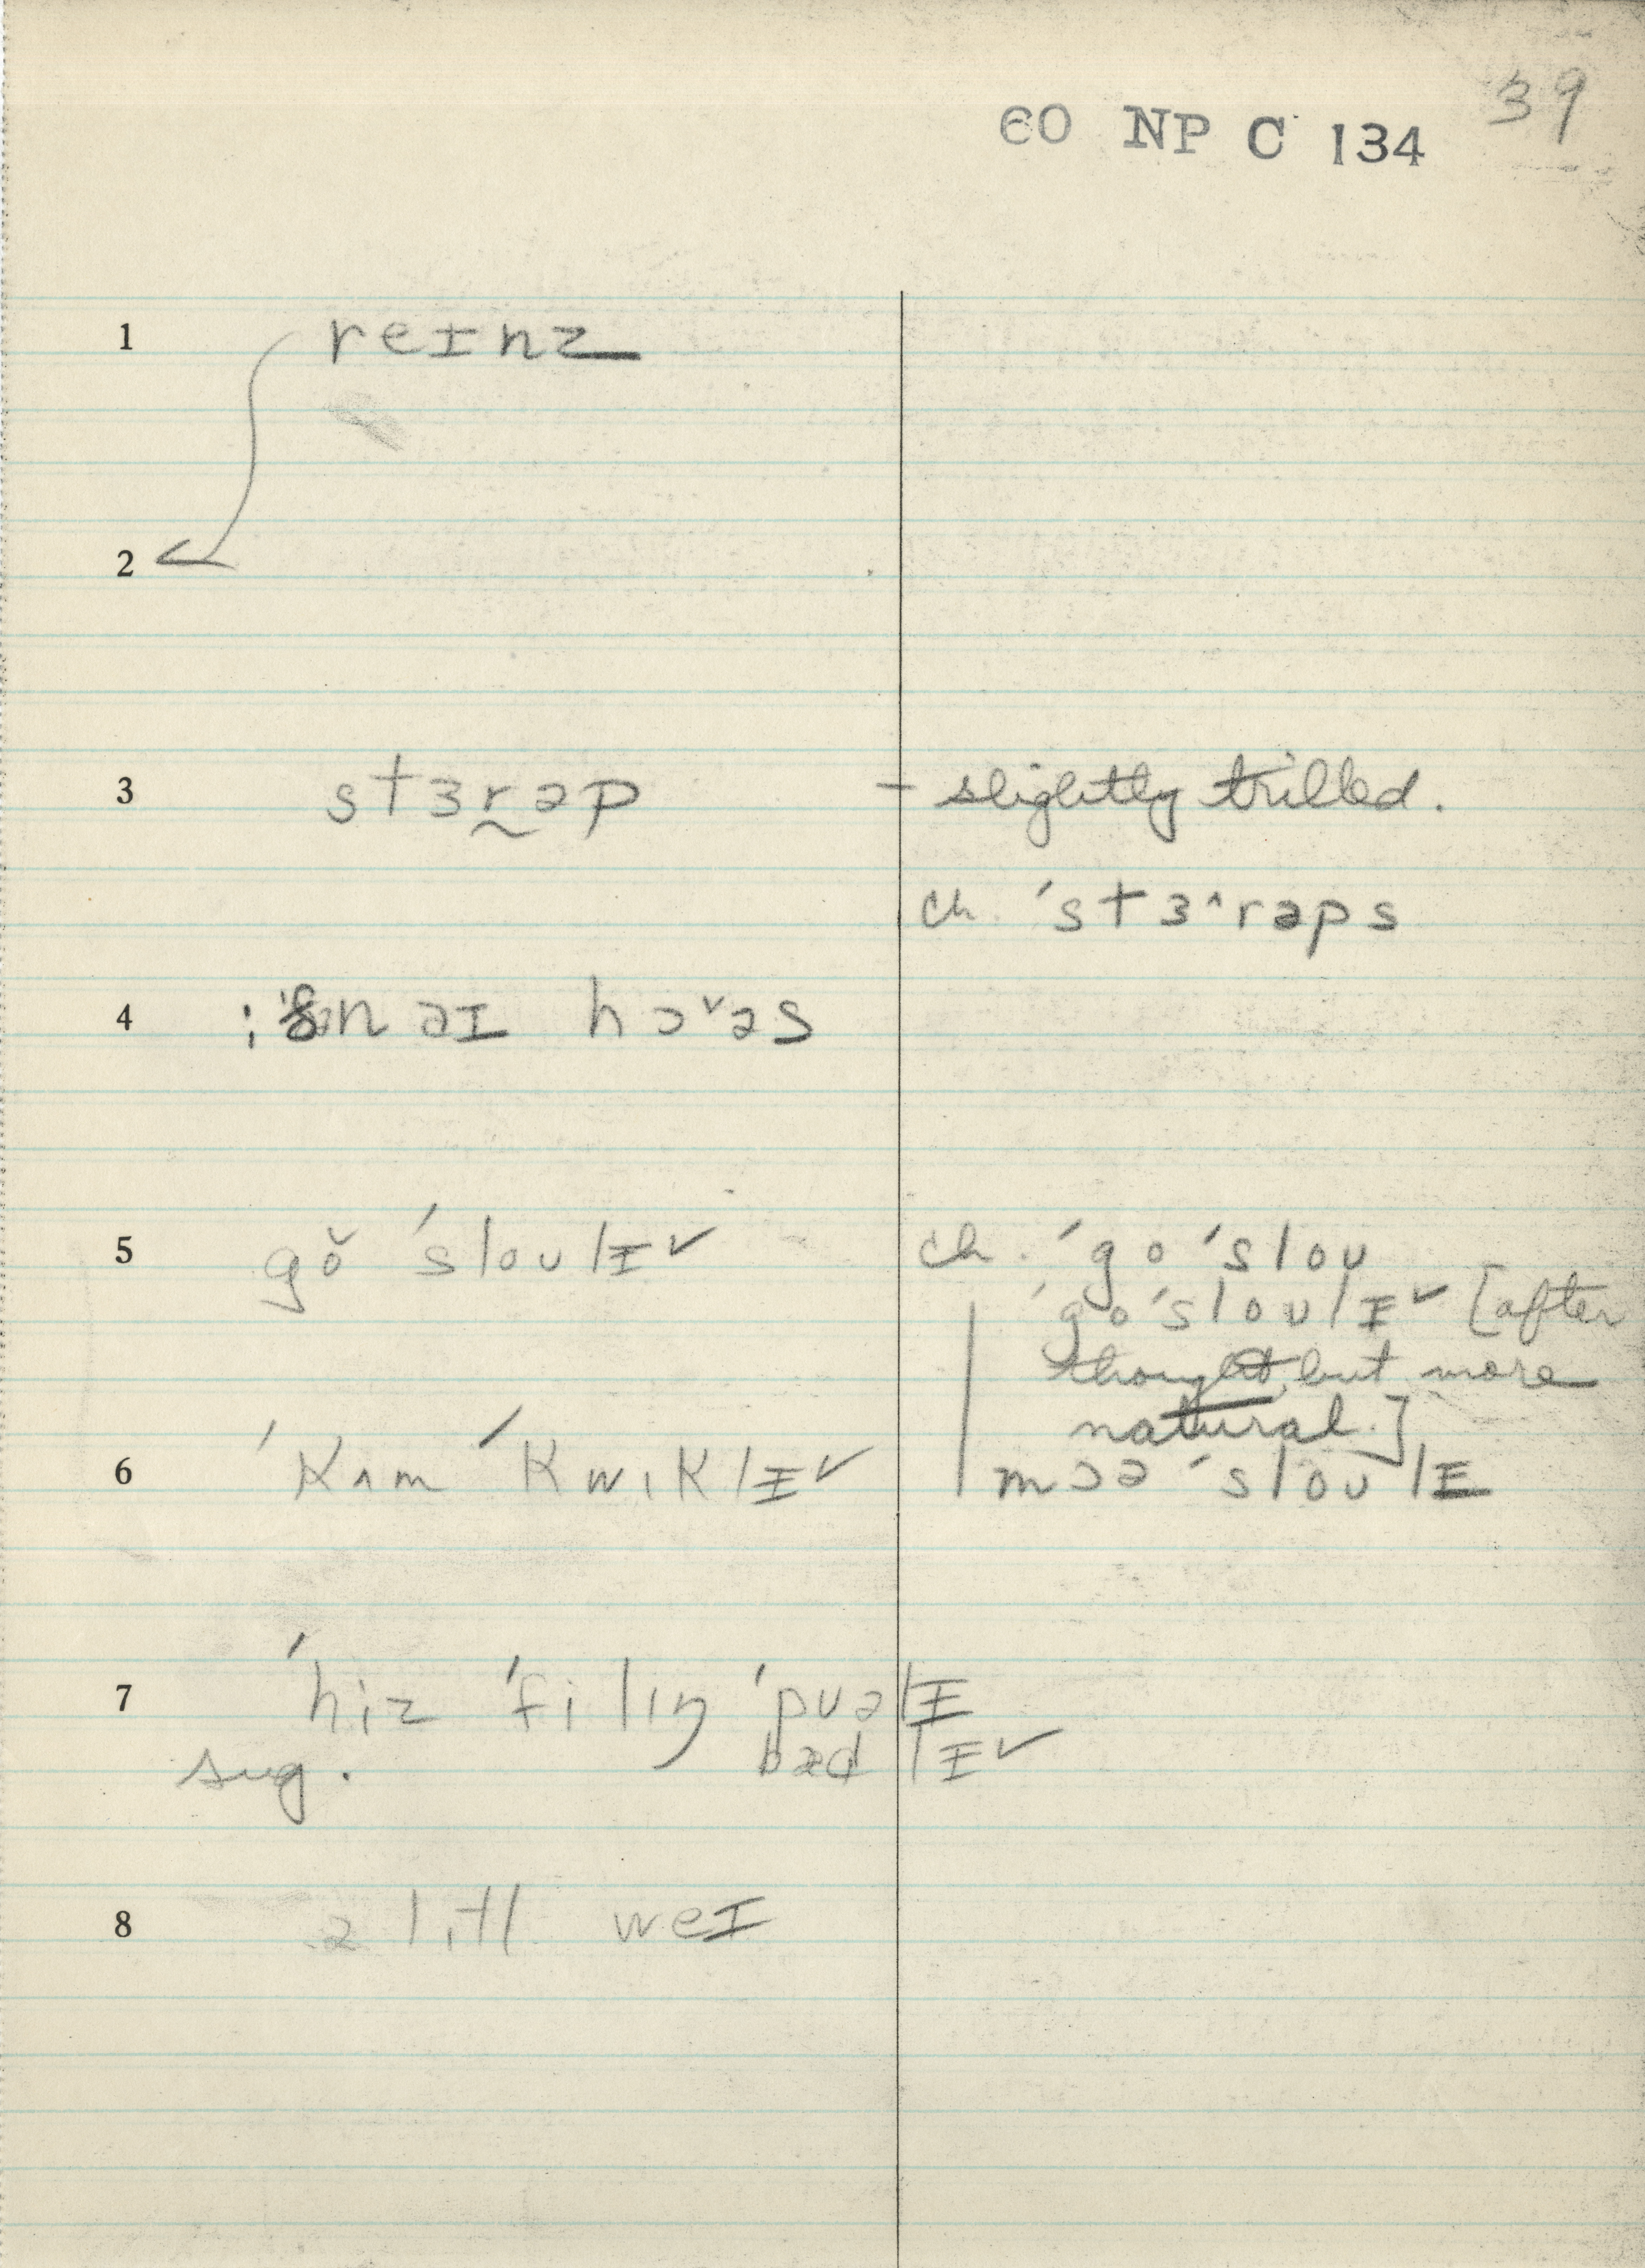 39
60 NP C 134
1 reɪnz
2
3 stɜr̰əp - slightly trilled.
ch. ˈstɜ˄rəps
4 n əɪ hɔ˅əs
5 gŏ ˈsloulɨ˅ ch. ˈgo ˈslou
ˈgoˈsloulɨ˅ [after
thought, but more
natural.]
6 ˈkʌm ˈkwɪklɨ˅ mɔə ˈsloulɨ
7 ˈhiz ˈfilɪŋ ˈpuəlɨ
sug. bædlɨ˅
8 ə lɪtl weɪ